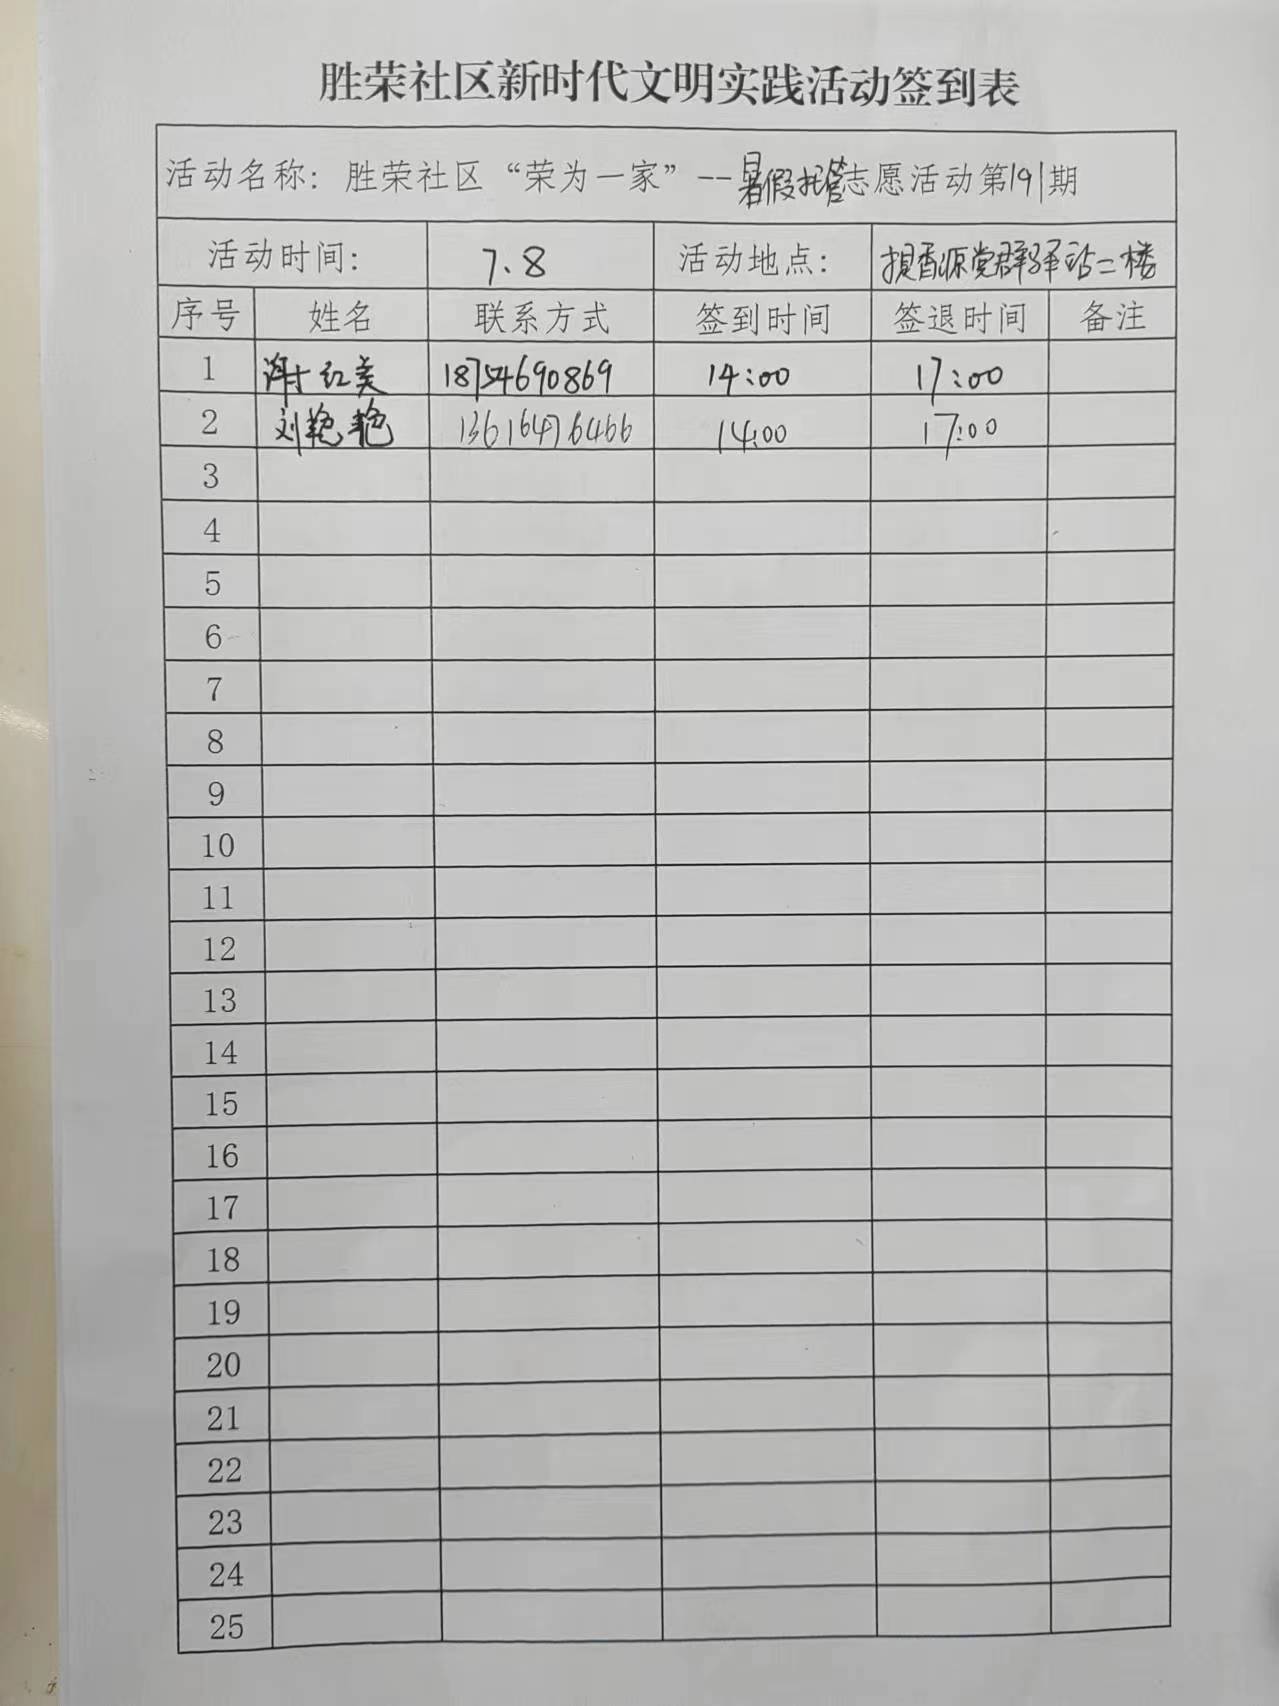 胜荣社区新时代文明实践活动签到表
活动名称：胜荣社区“荣为一家”--暑假托管志愿活动第191期
活动时间： 7.8 活动地点： 香源党群驿站二楼
序号 姓名 联系方式 签到时间 签退时间 备注
1 谢红美 18754690869 14:00 17:00
2 刘艳艳 13616476466 14:00 17:00
3
4
5
6
7
8
9
10
11
12
13
14
15
16
17
18
19
20
21
22
23
24
25